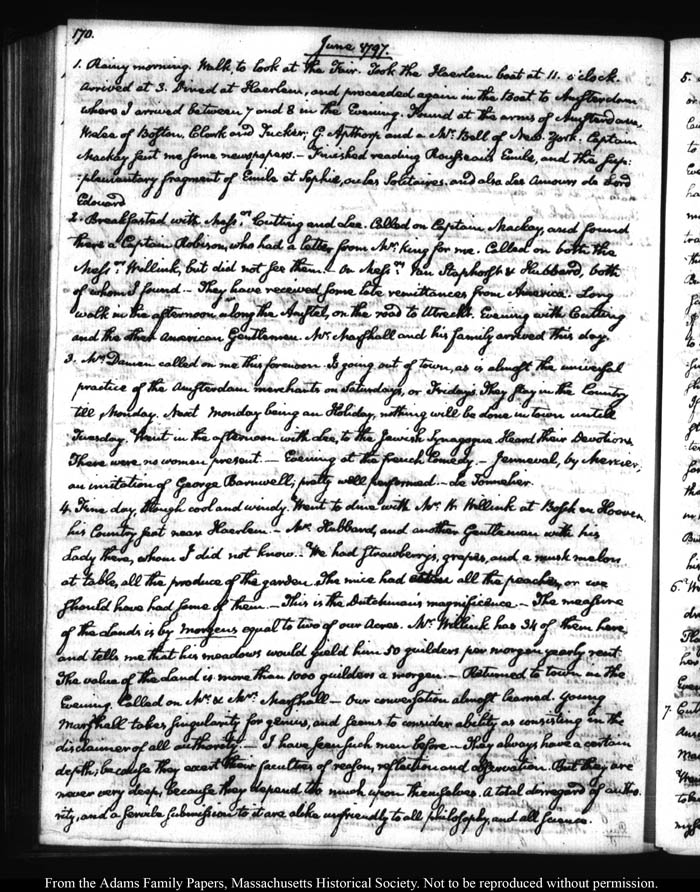 170.
June 1797.
1. Rainy morning. Walk, to look at the Fair. Took the Haerlem boat at 11. o'clock.
Arrived at 3. Dined at Haerlem, and proceeded again in the Boat to Amsterdam
where I arrived between 7 and 8 in the Evening. Found at the arms of Amsterdam,
Hales of Boston, Clark and Tucker; G Apthorp and a Mr. Bell of New-York. Captain
Mackay sent me some newspapers.— Finished reading Rousseau's Emile, and the sup-
:plementary fragment of Emile et Sophie, ou les Solitaires. and also Les Amours de Lord
Edouard
2. Breakfasted with Messrs. Cutting and Lee. Called on Captain Mackay, and found
there a Captain Robison, who had a letter from Mr. King for me. Called on both the
Messrs. Willink, but did not see them.— On Messrs. Van Staphorst & Hubbard, both
of whom I found.— They have received some late remittances from America. Long
walk in the afternoon along the Amstel, on the road to Utrecht. Evening with Cutting
and the other American Gentlemen. Mr. Marshall and his family arrived this day.
3. Mr. Damen called on me this forenoon. Is going out of town, as is almost the universal
practice of the Amsterdam merchants on Saturdays, or Fridays. They stay in the Country
till Monday. Next Monday being an Holiday, nothing will be done in town untill
Tuesday. Went in the afternoon with Lee, to the Jewish Synagogue. Heard their Devotions
There were no women present.— Evening at the french Comedy.— Jenneval, by Mercier,
an imitation of George Barnwell; pretty well performed.— Le Tonnelier.
4. Fine day, though cool and windy. Went to dine with Mr. W. Willink at Bosk en Hoven
his Country seat near Haerlem.— Mr. Hubbard, and another Gentleman with his
Lady there, whom I did not know.— We had strawberrys, grapes, and a musk melon
at table, all the produce of the garden. The mice had eaten all the peaches, or we
should have had some of them.— This is the Dutchman's magnificence.— The measure
of the Lands is by morgens equal to two of our Acres. Mr. Willink has 34 of them here
and tells me that his meadows would yield him 50 guilders per morgen yearly rent
The value of the land is more than 1000 guilders a morgen.— Returned to town in the
Evening. Called on Mr. & Mrs. Marshall— Our conversation almost learned. Young
Marshall takes singularity for genius, and seems to consider ability as consisting in the
disclaimer of all authority.— I have seen such men before.— They always have a certain
depth; because they exert their faculties of reason, reflection and observation. But they are
never very deep, because they depend too much upon themselves. A total disregard of autho-
rity, and a servile submission to it are alike unfriendly to all philosophy, and all science.
From the Adams Family Papers, Massachusetts Historical Society. Not to be reproduced without permission.